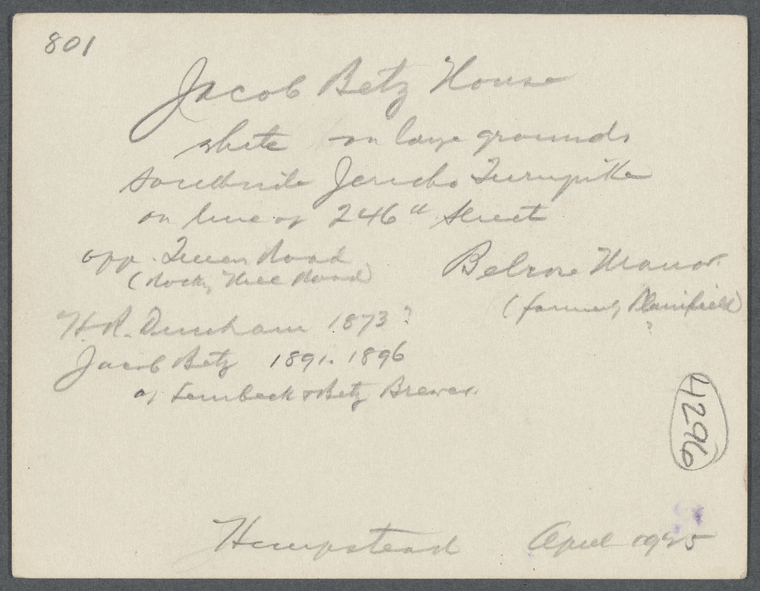 801
Jacob Betz House
white on large grounds
southside Jericho Turnpike
on line of 246th Street
opp. Road
(Rocky Hill Road)
Belrose Manor.
(formerly Plainfield)
?
H.R. 1873?
Jacob Betz 1891. 1896
of Lembeck & Betz Brewer.
4296
Hempstead April 1925